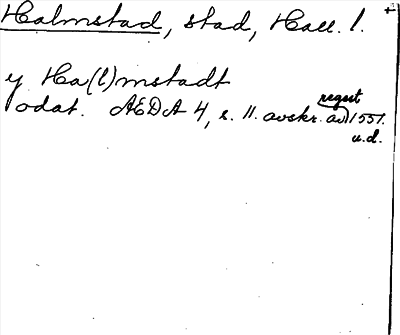 Halmstad, stad, Hall. l.
y Ha(l)mstadt
odat. AEDA 4, s. 11. avskr. av 1551.
regest
u.d.